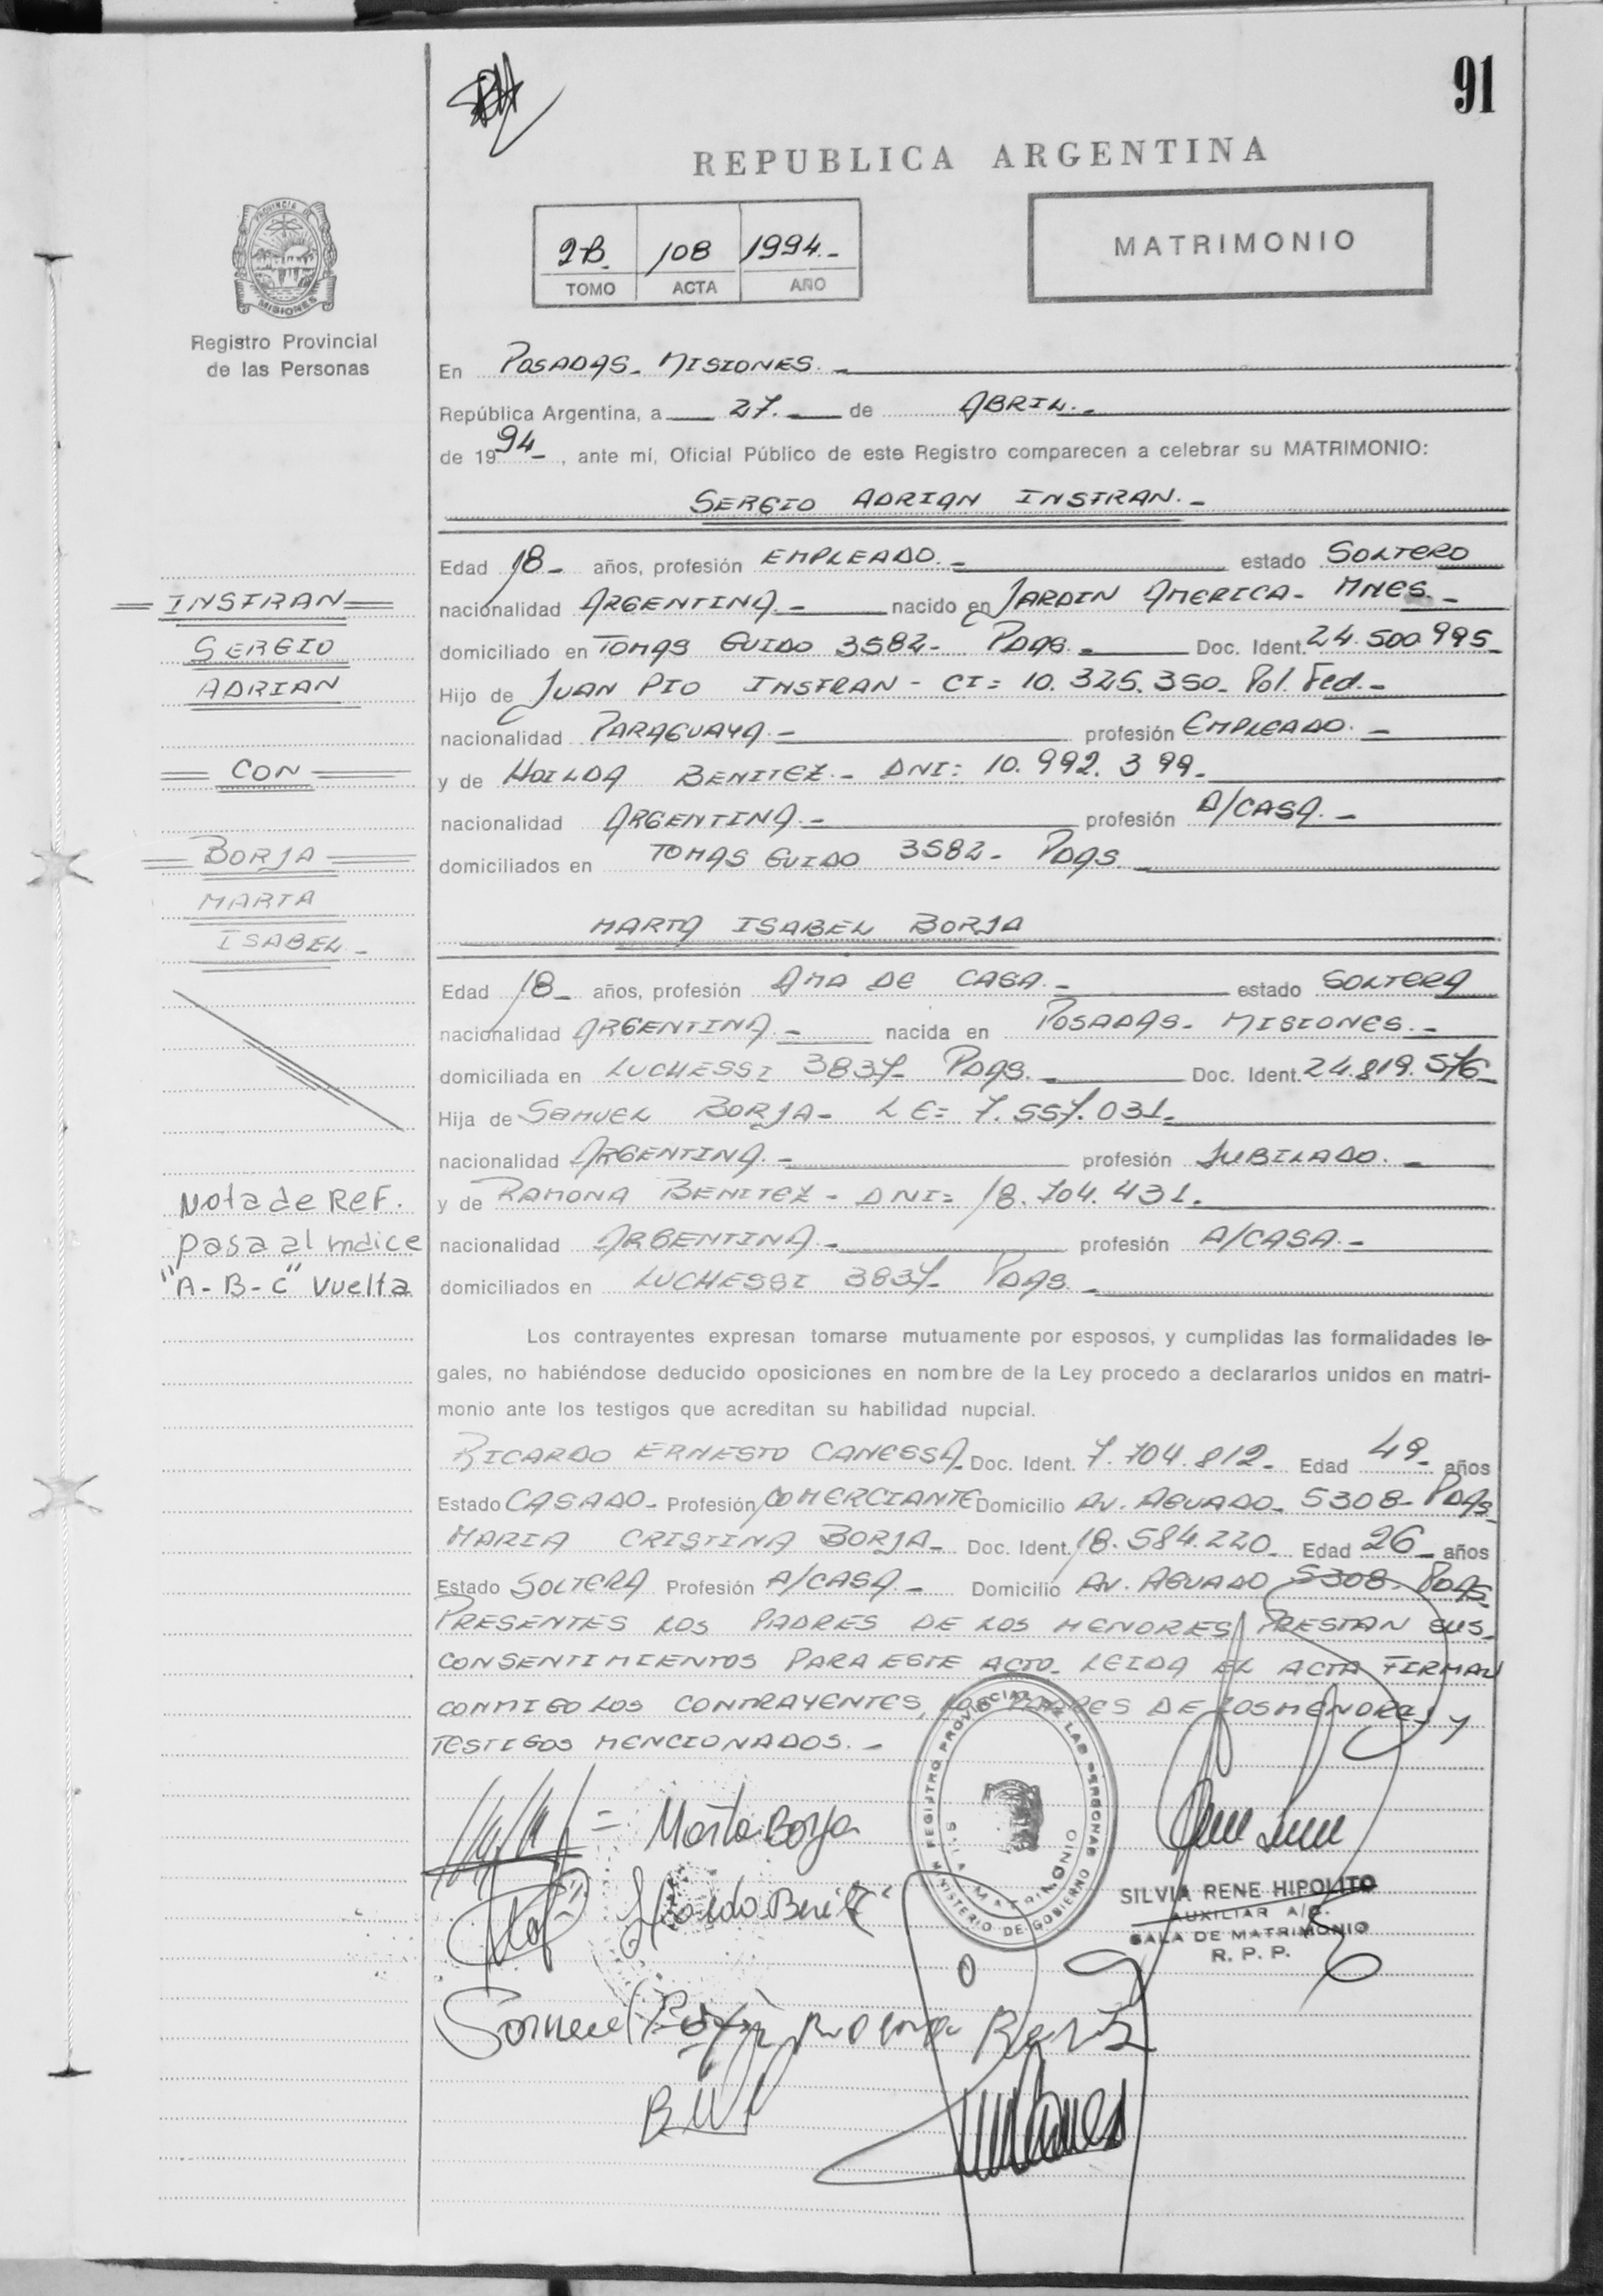 91
REPUBLICA ARGENTINA
2B 108 1994.-
TOMO ACTA AÑO
MATRIMONIO
PROVINCIA DE MISIONES
Registro Provincial
de las Personas
En POSADAS- MISIONES.-
República Argentina, a 27.- de ABRIL.-
de 1994-, ante mí, Oficial Público de este Registro comparecen a celebrar su MATRIMONIO:
SERGIO ADRIAN INSFRAN.-
Edad 18- años, profesión EMPLEADO.- estado SOLTERO
nacionalidad ARGENTINA.- nacido en JARDIN AMERICA- MNES.-
domiciliado en TOMAS GUIDO 3582- PDAS.- Doc. Ident. 24.500.995-
Hijo de JUAN PIO INSFRAN - CI: 10.325.350- Pol. Fed.-
nacionalidad PARAGUAYA.- profesión EMPLEADO.-
y de HOILDA BENITEZ.- DNI: 10.992.399-
nacionalidad ARGENTINA.- profesión A/CASA.-
domiciliados en TOMAS GUIDO 3582- PDAS.
MARTA ISABEL BORJA
Edad 18- años, profesión AMA DE CASA.- estado SOLTERA
nacionalidad ARGENTINA.- nacida en POSADAS- MISIONES.-
domiciliada en LUCHESSI 3837- PDAS.- Doc. Ident. 24.819.576-
Hija de SAMUEL BORJA- LE: 7.557.031-
nacionalidad ARGENTINA.- profesión JUBILADO.-
y de RAMONA BENITEZ - DNI: 18.704.431.
nacionalidad ARGENTINA.- profesión A/CASA.-
domiciliados en LUCHESSI 3837- PDAS.-
INSFRAN
SERGIO
ADRIAN
CON
BORJA
MARTA
ISABEL-
Nota de REF.
pasa al indice
"A-B-C" Vuelta
Los contrayentes expresan tomarse mutuamente por esposos, y cumplidas las formalidades le-
gales, no habiéndose deducido oposiciones en nombre de la Ley procedo a declararlos unidos en matri-
monio ante los testigos que acreditan su habilidad nupcial.
RICARDO ERNESTO CANESSA- Doc. Ident. 7.704.812- Edad 49- años
Estado CASADO- Profesión COMERCIANTE Domicilio AV. AGUADO- 5308- PDAS-
MARIA CRISTINA BORJA- Doc. Ident. 18.584.220- Edad 26- años
Estado SOLTERA Profesión A/CASA.- Domicilio AV. AGUADO 5308- PDAS-
PRESENTES LOS PADRES DE LOS MENORES PRESTAN SUS
CONSENTIMIENTOS PARA ESTE ACTO- LEIDA EL ACTA FIRMAN
CONMIGO LOS CONTRAYENTES, LOS PADRES DE LOS MENORES Y
TESTIGOS MENCIONADOS.-
REGISTRO PROVINCIAL DE LAS PERSONAS
SALA MATRIMONIO
MINISTERIO DE GOBIERNO
Marta Borja
SILVIA RENE HIPOLITO
AUXILIAR A/C.
SALA DE MATRIMONIO
R. P. P.
Samuel Borja Ramona